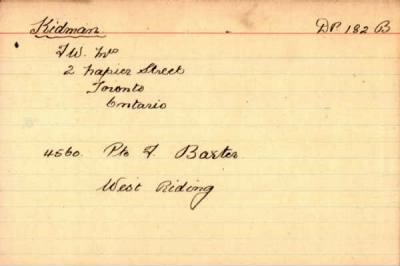 Kidman DP. 182 B
F W. Mrs
2 Napier Street
Toronto
Ontario
4560. Pte F. Baxter
West Riding